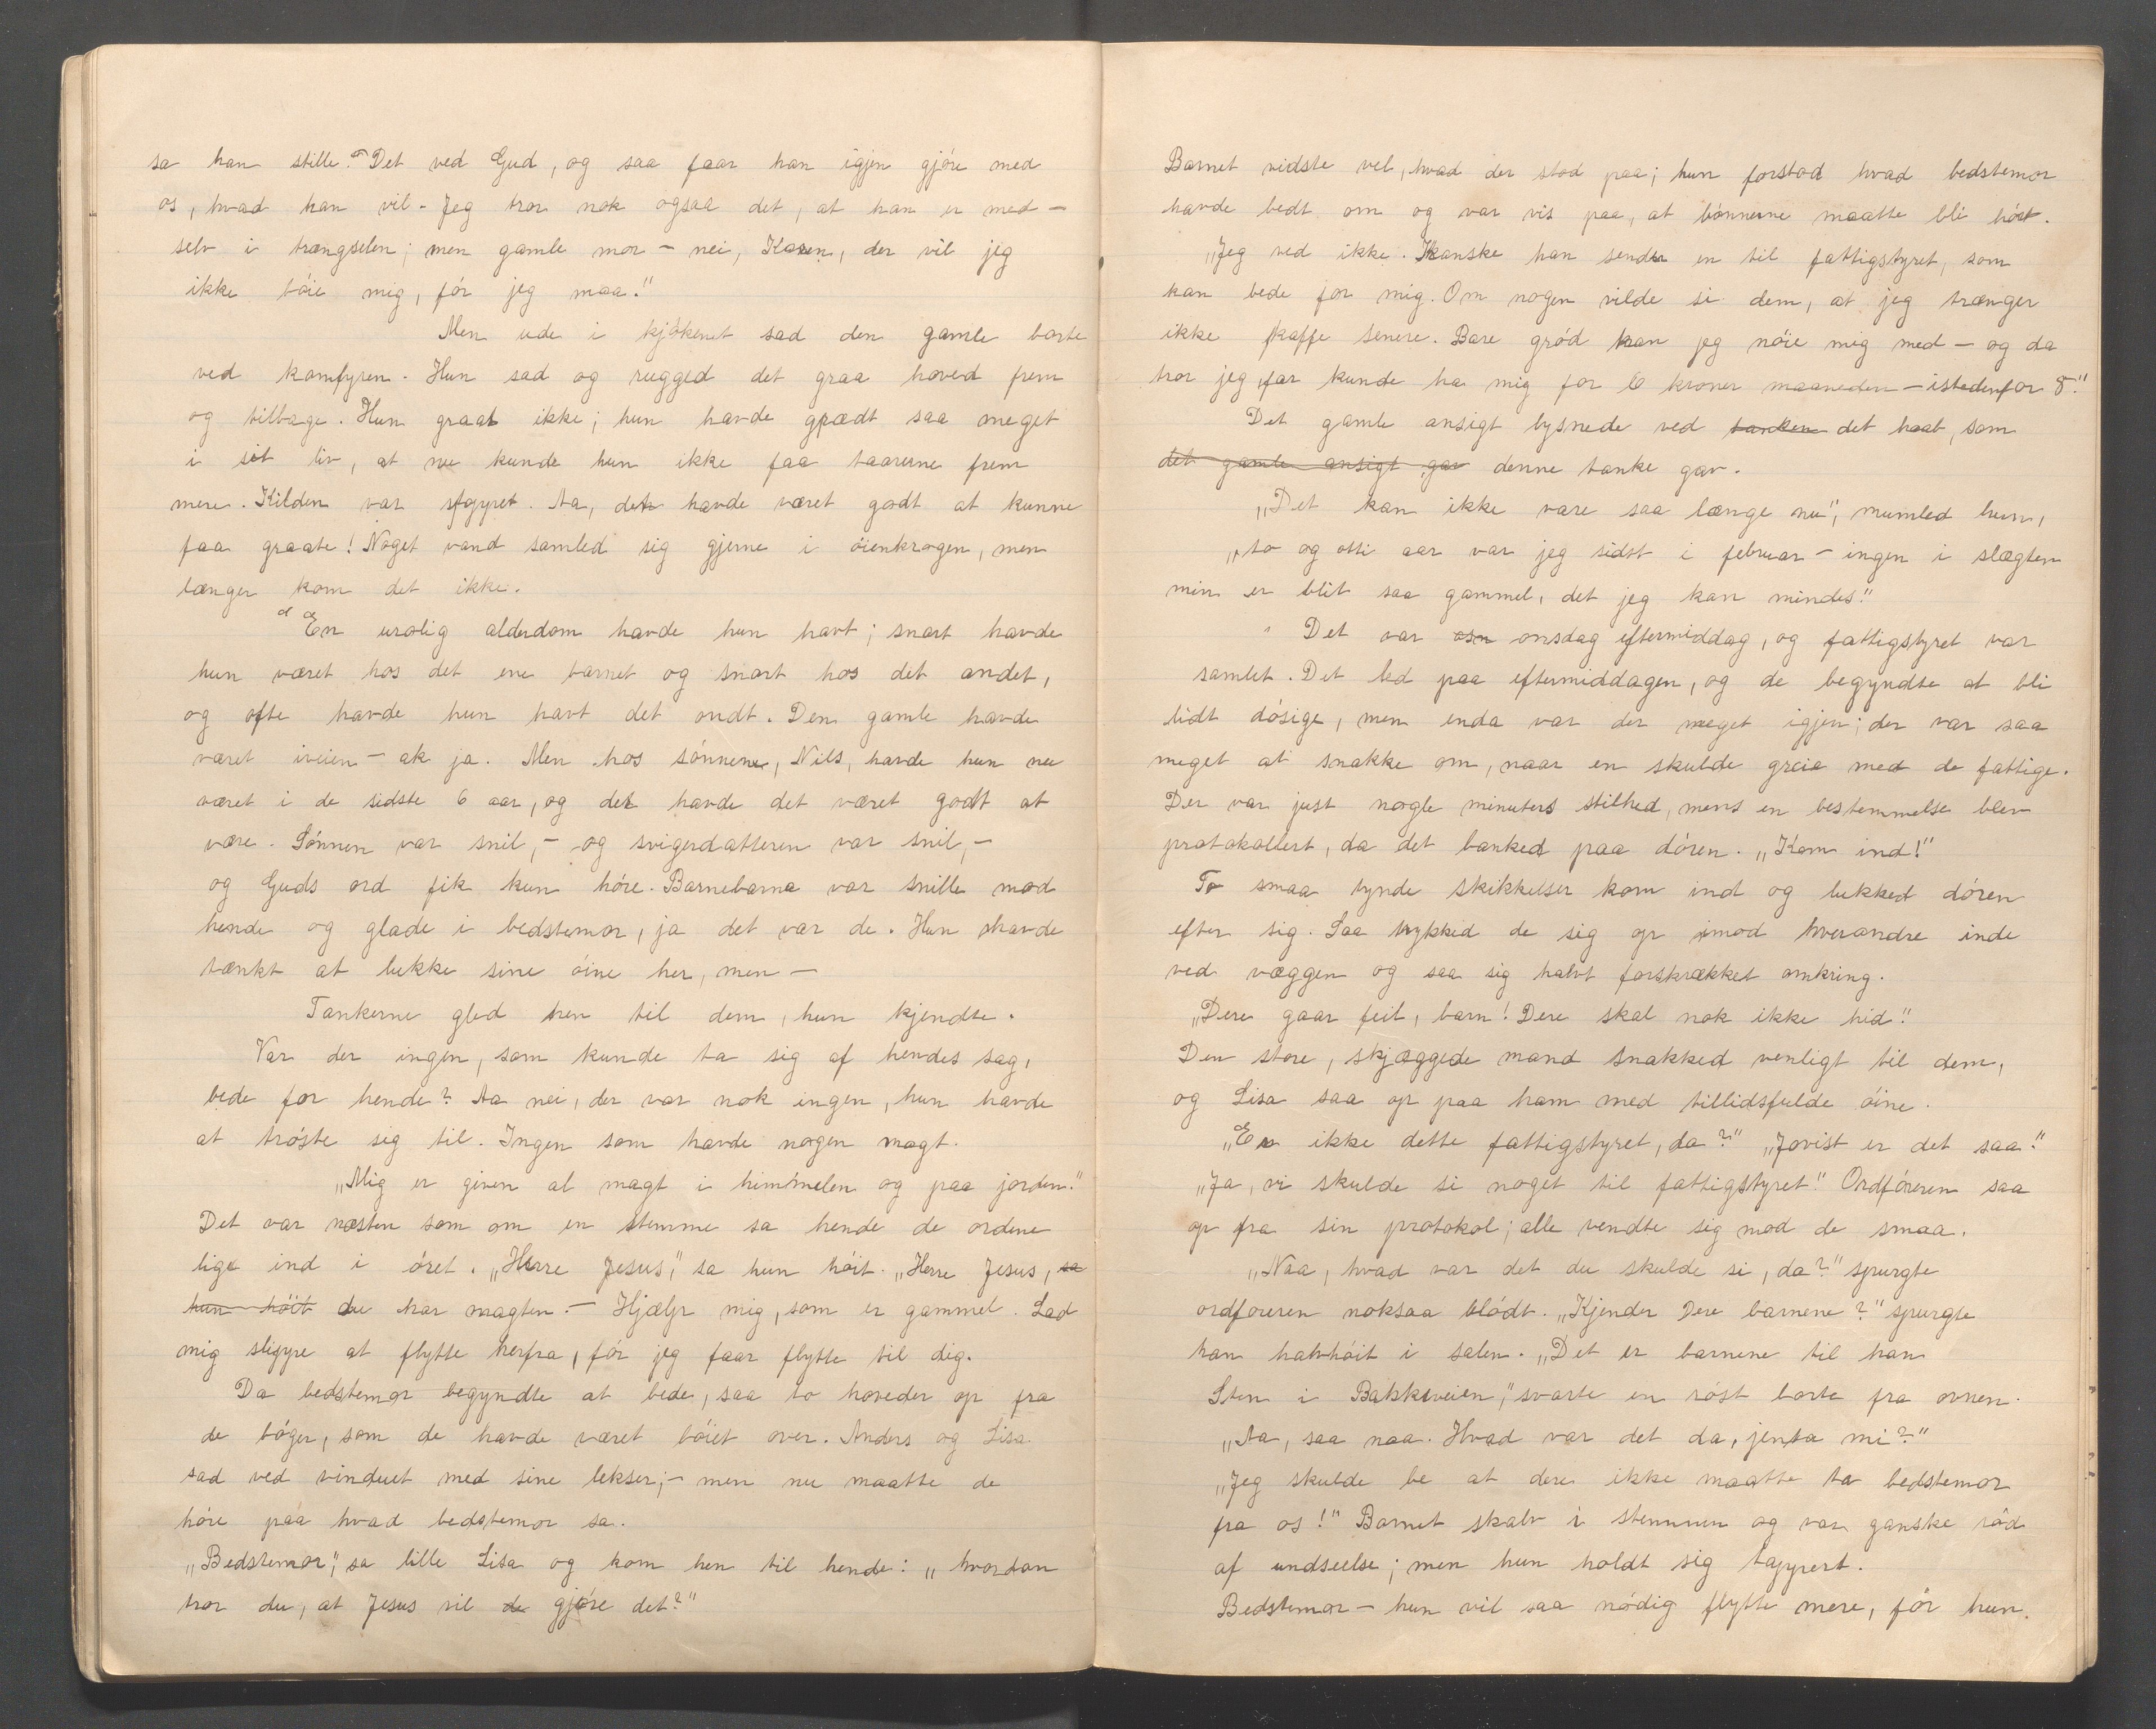 sa han stille. "Det ved Gud, og saa faar han igjen gjøre med
os, hvad han vil. Jeg tror nok ogsaa det, at han er med-
selv i trængselen; men gamle mor - nei, Karen, der vil jeg
ikke bøie mig, før jeg maa."
Men ude i kjøkenet sad den gamle borte
ved komfyren. Hun sad og rugged det graa hoved frem
og tilbage. Hun graat ikke; hun havde grædt saa meget
i sit liv, at nu kunde hun ikke faa taarerne frem
mere. Kilden var stoppet. Aa, det havde været godt at kunne
faa graate! Noget vand samled sig gjerne i øienkrogen, men
længer kom det ikke.
En urolig alderdom havde hun havt; snart havde
hun været hos det ene barnet og snart hos det andet,
og ofte havde hun havt det ondt. Den gamle havde
været iveien - ak ja. Men hos sønnen, Nils, havde hun nu
været i de sidste 6 aar, og der havde det været godt at
være. Sønnen var snil, - og svigerdatteren var snil, -
og Guds ord fik hun høre. Barnebarna var snille mod
hende og glade i bedstemor, ja det var de. Hun havde
tænkt at lukke sine øine her, men -
Tankerne gled hen til dem, hun kjendte.
Var der ingen, som kunde ta sig af hendes sag,
bede for hende? Aa nei, der var nok ingen, hun havde
at trøste sig til. Ingen som havde nogen magt.
"Mig er given al magt i himmelen og paa jorden."
Det var næsten som om en stemme sa hende de ordene
lige ind i øret. "Herre Jesus," sa hun høit. "Herre Jesus, sa
hun høit du har magten. - Hjælp mig, som er gammel. Lad
mig slippe at flytte herfra, før jeg faar flytte til dig.
Da bedstemor begyndte at bede, saa to hoveder op fra
de bøger, som de havde været bøiet over. Anders og Lisa
sad ved vinduet med sine lekser; - men nu maatte de
høre paa hvad bedstemor sa.
"Bedstemor," sa lille Lisa og kom hen til hende: "hvordan
tror du, at Jesus vil de gjøre det?"
Barnet vidste vel, hvad der stod paa; hun forstod hvad bedstemor
havde bedt om og var vis paa, at bønnerne maatte bli hørt.
"Jeg ved ikke. Kanske han sender en til fattigstyret, som
kan bede for mig. Om nogen vilde si dem, at jeg trænger
ikke kaffe senere. Bare grød kan jeg nøie mig med - og da
tror jeg, far kunde ha mig for 6 kroner maaneden - istedenfor 8."
Det gamle ansigt lysnede ved tanken det haab, som
det gamle ansigt gav denne tanke gav.
"Det kan ikke vare saa længe nu", mumled hun,
"to og otti aar var jeg sidst i februar - ingen i slægten
min er blit saa gammel, det jeg kan mindes."
Det var osn onsdag eftermiddag, og fattigstyret var
samlet. Det led paa eftermiddagen, og de begyndte at bli
lidt døsige, men enda var der meget igjen; der var saa
meget at snakke om, naar en skulde greie med de fattige.
Der var just nogle minuters stilhed, mens en bestemmelse blev
protokollert, da det banked paa døren. "Kom ind!"
To smaa tynde skikkelser kom ind og lukked døren
efter sig. Saa trykked de sig op imod hverandre inde
ved væggen og saa sig halvt forskrækket omkring.
"Dere gaar feil, barn! Dere skal nok ikke hid."
Den store, skjæggede mand snakked venligt til dem,
og Lisa saa op paa ham med tillidsfulde øine.
"Er ikke dette fattigstyret, da?" "Jovist er det saa."
"Ja, vi skulde si noget til fattigstyret." Ordføreren saa
op fra sin protokol; alle vendte sig mod de smaa.
"Naa, hvad var det du skulde si, da?" spurgte
ordføreren noksaa blødt. "Kjender Dere barnene?" spurgte
han halvhøit i salen. "Det er barnene til han
Sten i Bakkeveien," svarte en røst borte fra ovnen.
"Aa, saa naa. Hvad var det da, jenta mi?"
"Jeg skulde be at dere ikke maatte ta bedstemor
fra os!" Barnet skalv i stemmen og var ganske rød
af undseelse; men hun holdt sig tappert.
Bedstemor - hun vil saa nødig flytte mere, før hun